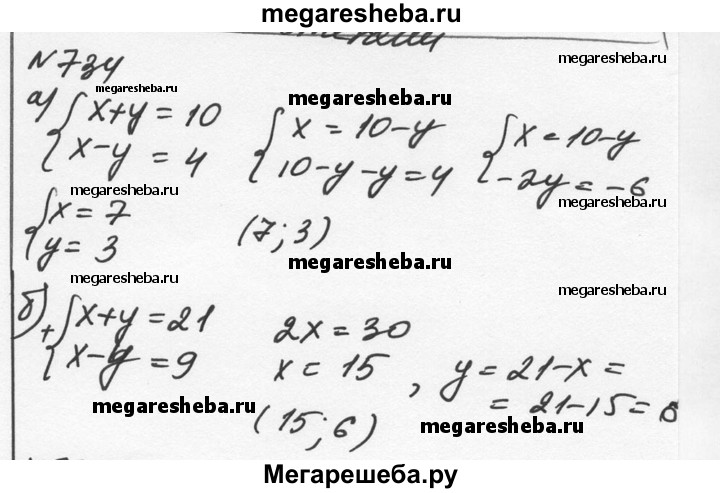 megaresheba.ru
N 734
megaresheba.ru
а) { x+y = 10
x-y = 4
megaresheba.ru
{ x = 10-y
10-y-y=4
megaresheba.ru
{ x=10-y
-2y=-6
megaresheba.ru
megaresheba.ru
{ x=7
y= 3
(7; 3)
megaresheba.ru
megaresheba.ru
megaresheba.ru
б) + { x+y=21
x-y=9
2x=30
x= 15, y=21-x=
= 21-15=6
megaresheba.ru
(15; 6)
megaresheba.ru
Мегарешеба.ру